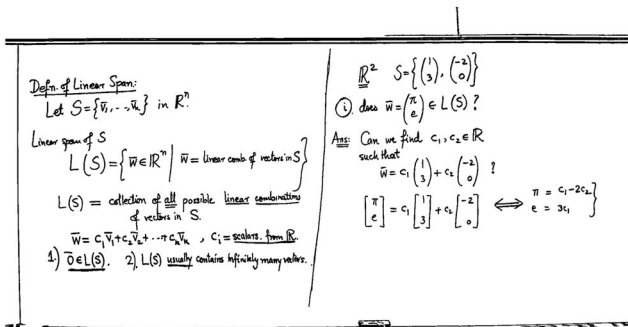 Defn. of Linear Span:
Let S={v̅₁,..,v̅ₖ} in ℝⁿ.
Linear span of S
L(S)={w̅∈ℝⁿ | w̅=linear comb. of vectors in S}
L(S) = collection of all possible linear combinations
of vectors in S.
w̅= c₁v̅₁+c₂v̅₂+..+cₖv̅ₖ , cᵢ=scalars from ℝ.
1.) 0̅∈L(S). 2). L(S) usually contains infinitely many vectors.
ℝ² S={(1 3), (-2 0)}
(i) does w̅=(π e)∈L(S)?
Ans: Can we find c₁,c₂∈ℝ
such that
w̅=c₁(1 3)+c₂(-2 0) ?
[π e]=c₁[1 3]+c₂[-2 0] ⟺ π = c₁-2c₂
e = 3c₁ }